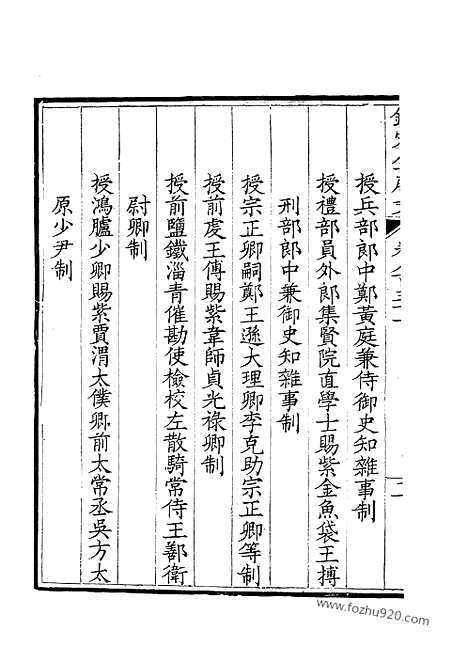 授兵部郎中鄭黃庭兼侍御史知雜事制
授禮部員外郎集賢院直學士賜紫金魚袋王摶
刑部郎中兼御史知雜事制
授宗正卿嗣鄭王遜大理卿李克助宗正卿等制
授前虔王傅賜紫韋師貞光祿卿制
授前鹽鐵淄青催勘使檢校左散騎常侍王鄯衛
尉卿制
授鴻臚少卿賜紫賈渭太僕卿前太常丞吳方太
原少尹制
www.fozhu920.com